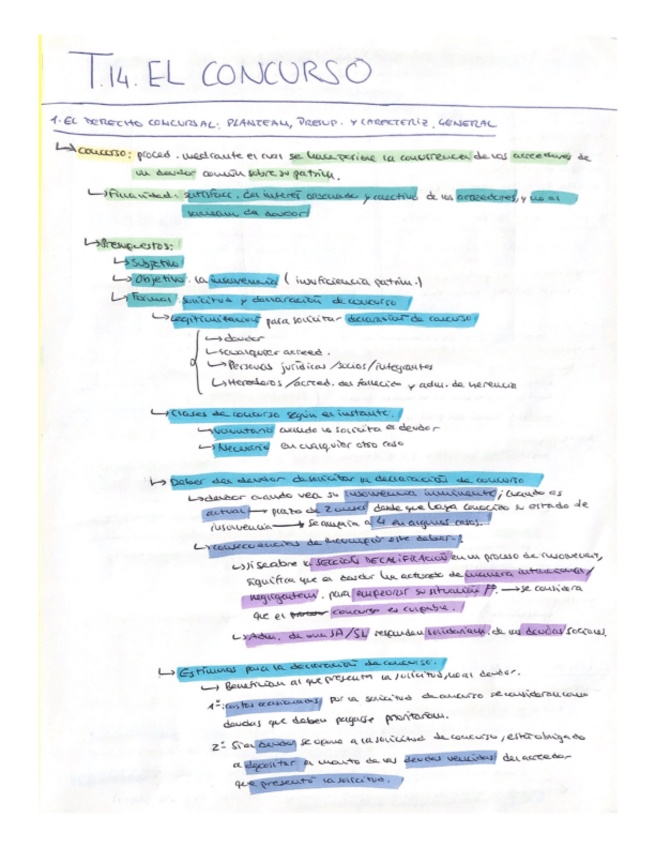 T.14. EL CONCURSO
1. EL DERECHO CONCURSAL: PLANTEAM, PRESUP. Y CARACTERIZ. GENERAL
↳ Concurso: proced. mediante el cual se hace posible la concurrencia de los acreedores de
un deudor común sobre su patrim.
↳ Finalidad: satisfacc. del interés ordenado y colectivo de los acreedores, y no el
del deudor
↳ Presupuestos:
↳ Subjetivo
↳ Objetivo: la insolvencia (insuficiencia patrim.)
↳ Formal: solicitud y declaración de concurso
↳ Legitimación para solicitar declaración de concurso:
↳ deudor
↳ cualquier acreed.
↳ Personas jurídicas/socios/integrantes
↳ Herederos/acreed. del fallecido y adm. de herencia
↳ Clases de concurso según el instante:
↳ Voluntario cuando lo solicita el deudor
↳ Necesario en cualquier otro caso
↳ Deber del deudor de solicitar la declaración de concurso
↳ deudor cuando vea su insolvencia inminente; cuando es
actual → plazo de 2 meses desde que haya conocido su estado de
insolvencia → se amplía a 4 en algunos casos.
↳ Consecuencias de incumplir este deber:
↳ si se abre la SECCIÓN DE CALIFICACIÓN en un proceso de insolvencia,
significa que el deudor ha actuado de manera intencional/
negligentem. para empeorar su situación → se considera
que el concurso es culpable.
↳ Adm. de una SA/SL respondan solidariam. de las deudas sociales.
↳ Estímulos para la declaración de concurso.
↳ Benefician al que presenta la solicitud, no al deudor.
1º: costes ocasionados por la solicitud de concurso se consideran como
deudas que deben pagarse prioritariam.
2º: Si el deudor se opone a la solicitud de concurso, está obligado
a depositar el monto de las deudas vencidas del acreedor
que presentó la solicitud.